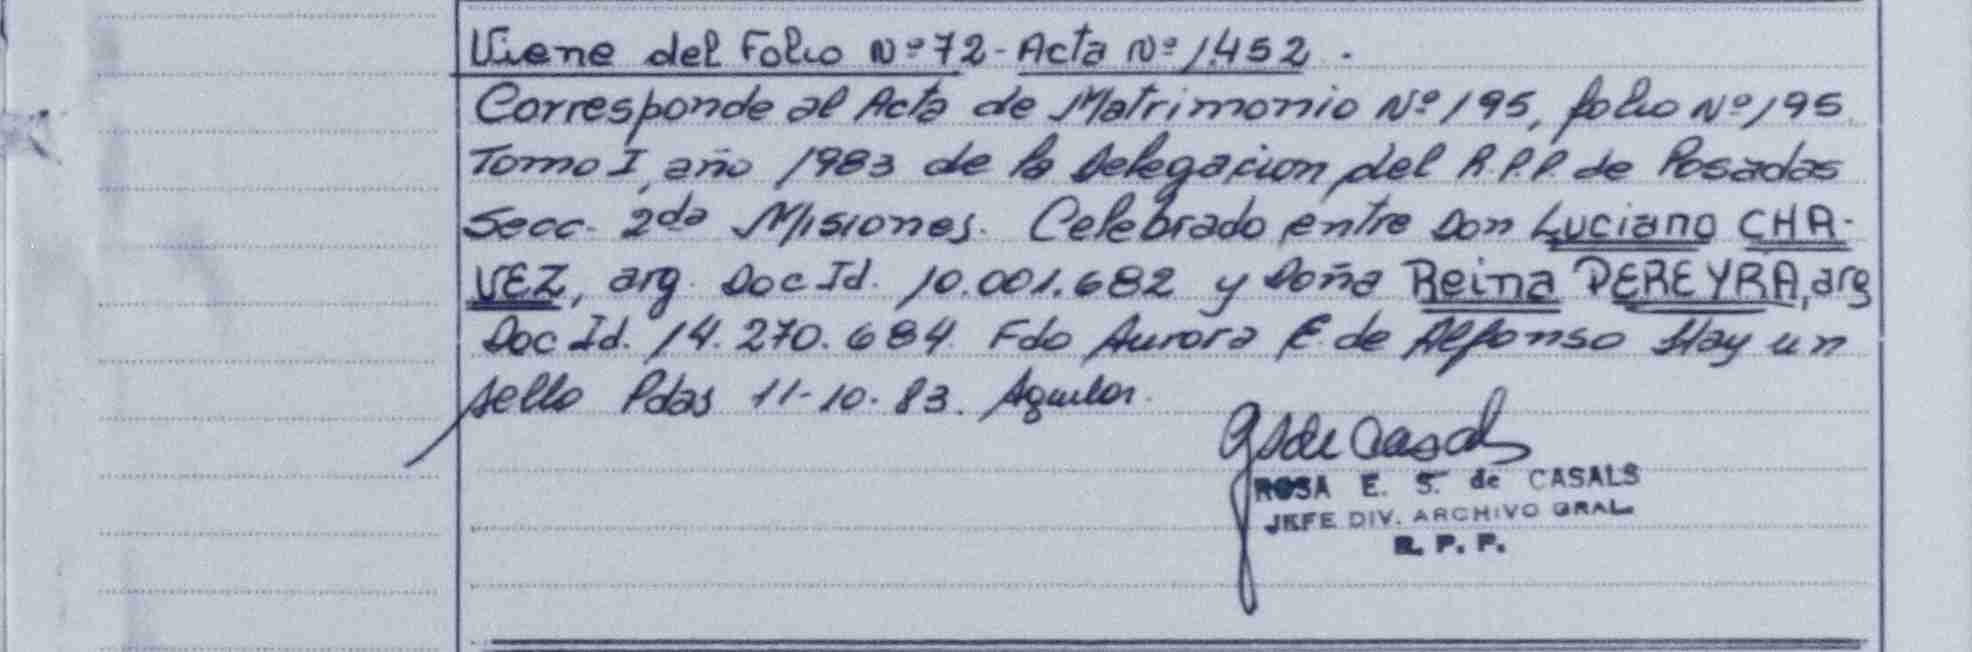 Viene del Folio Nº 72 - Acta Nº 1.452.
Corresponde al Acta de Matrimonio Nº 195, folio Nº 195
Tomo I, año 1983 de la Delegacion del R.P.P. de Posadas
Secc. 2da Misiones. Celebrado entre Don Luciano CHA-
VEZ, arg. Doc Id. 10.001.682 y Doña Reina PEREYRA, arg
Doc Id. 14.270.684. Fdo Aurora E. de Alfonso Hay un
sello Pdas 11-10-83. Aguilar.
de Casals
ROSA E. S. de CASALS
JEFE DIV. ARCHIVO GRAL.
R. P. P.